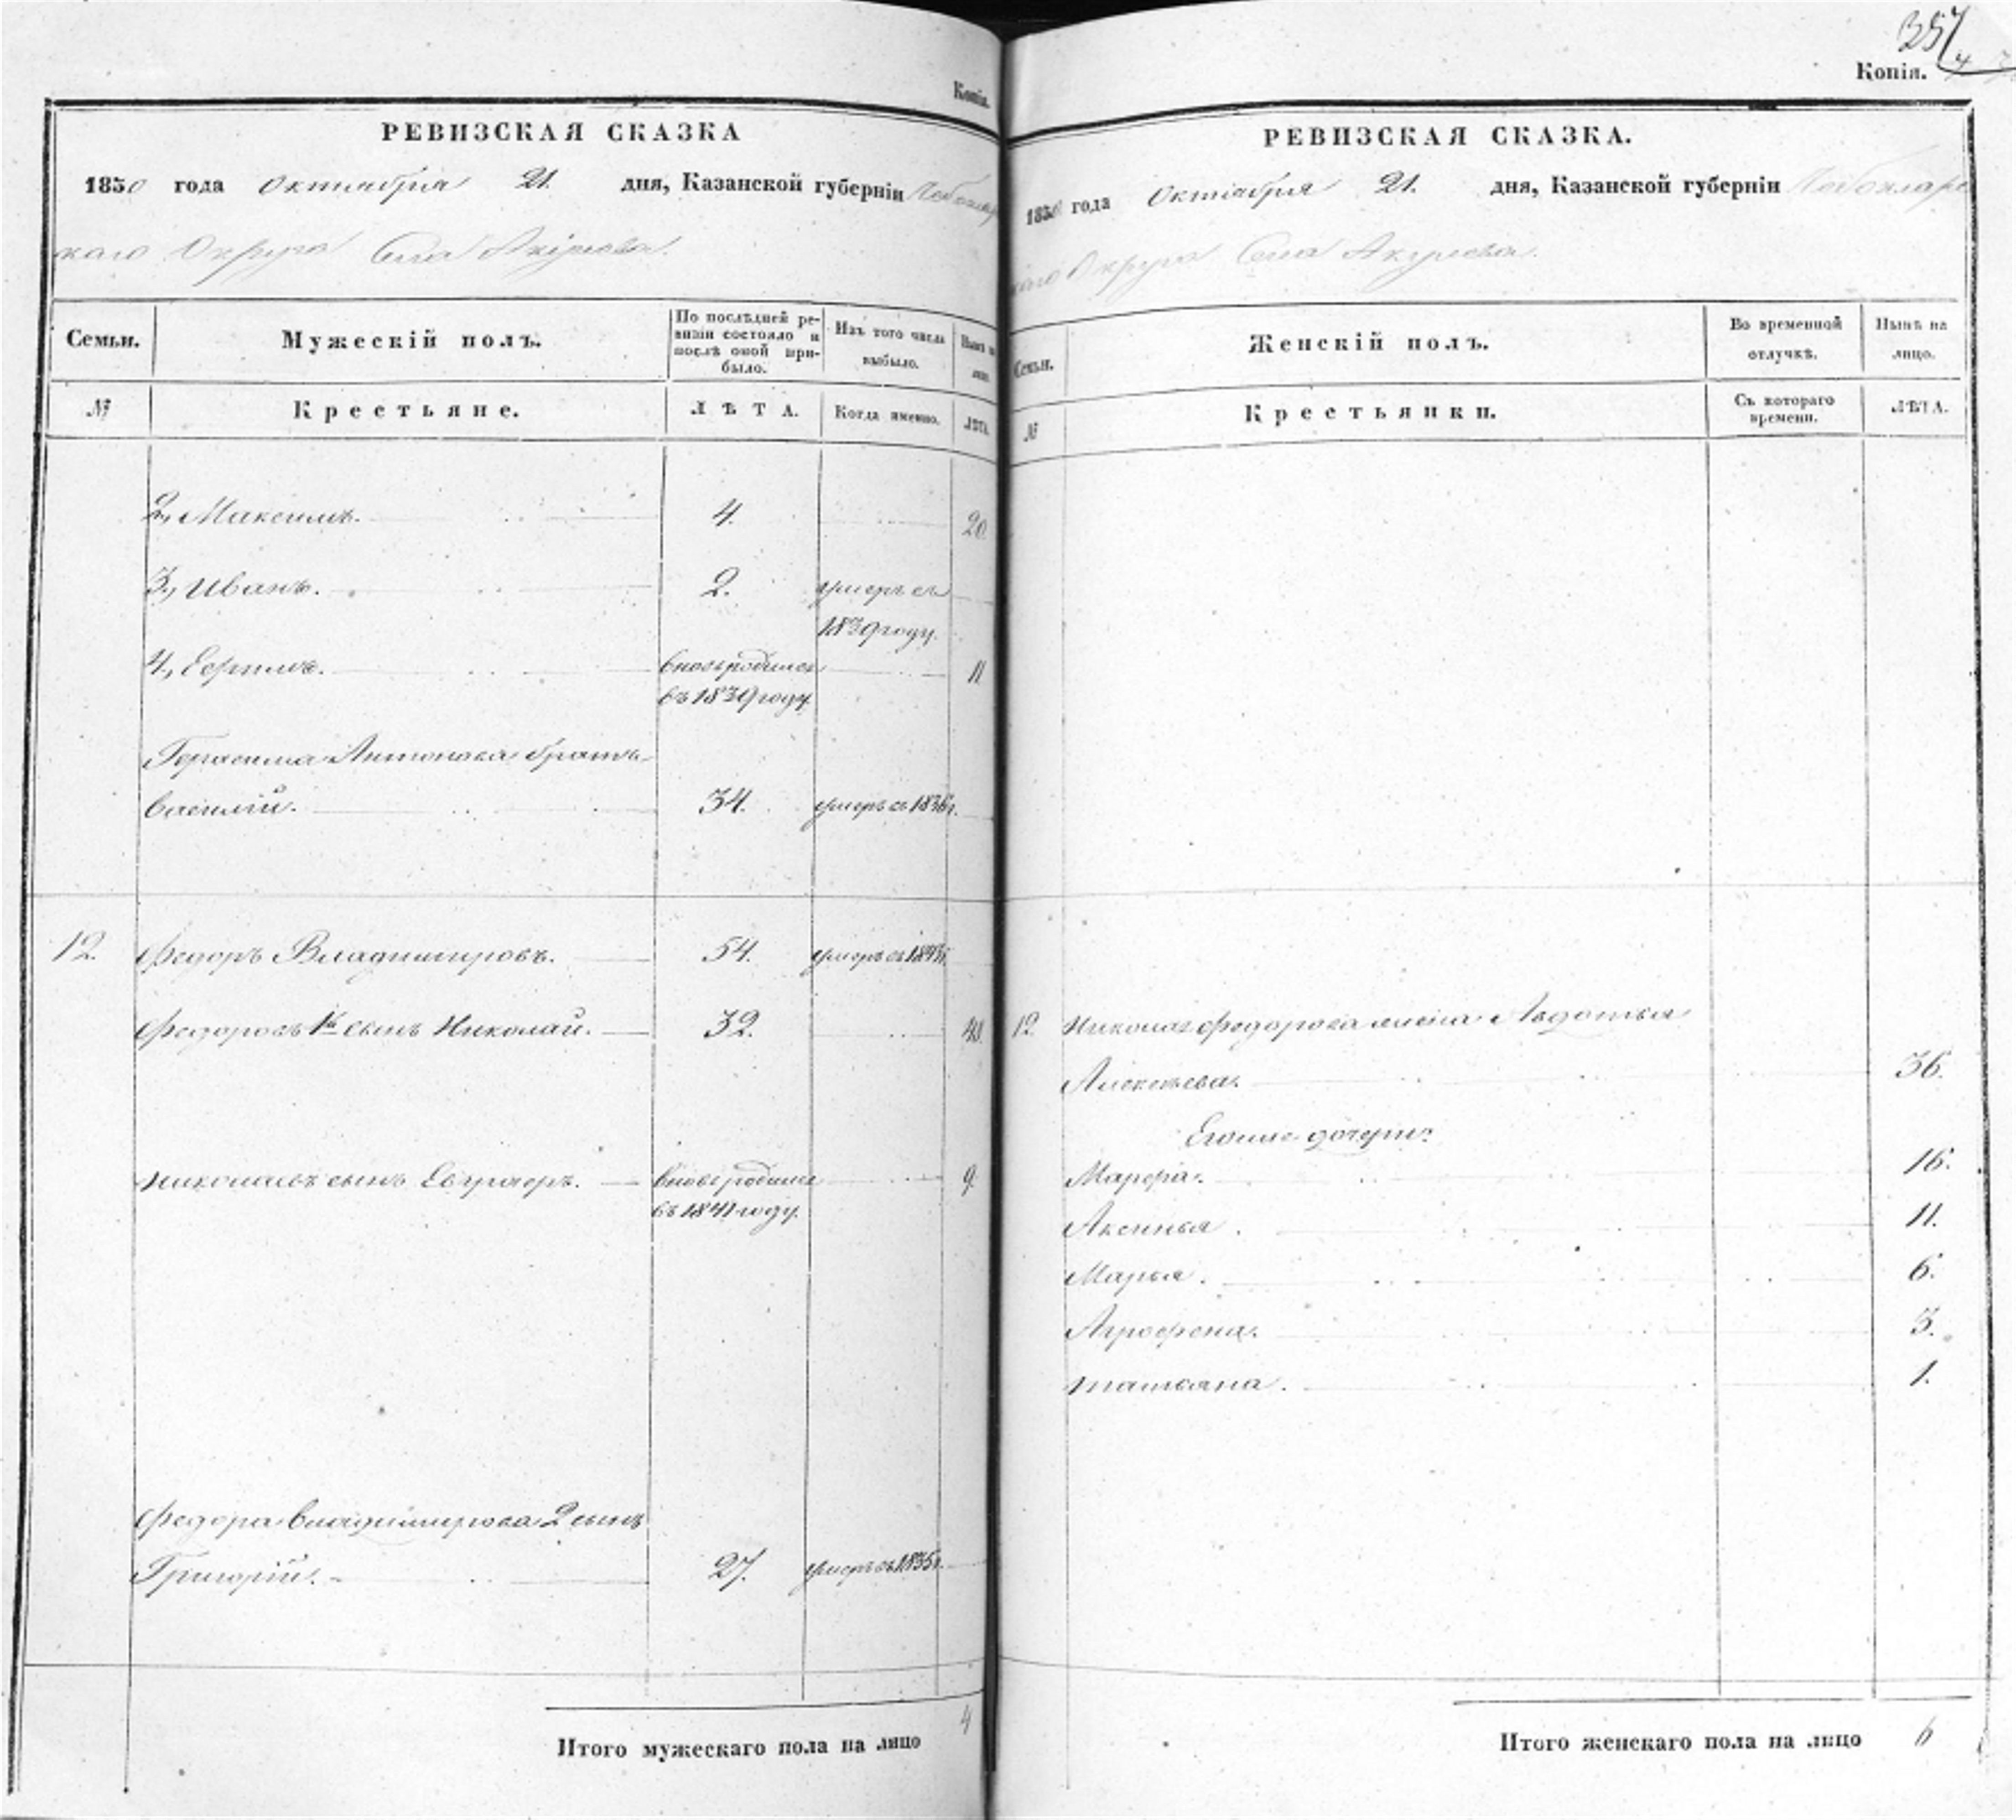 Копія.
РЕВИЗСКАЯ СКАЗКА
1850 года Октября 21. дня, Казанской губерніи Чебоксар
скаго Округа Села Акулева.
Семьи. Мужескій полъ. По послѣдней ре-
визіи состояло и
послѣ оной при-
было. Изъ того числа
выбыло. Нынѣ на
лицо.
№ Крестьяне. ЛѢТА. Когда именно. ЛѢТА.
2, Максимъ. 4. 20.
3, Иванъ. 2. умеръ въ
1839 году.
4, Ефимъ. вновь родился 11
въ 1839 году
Герасима Антонова братъ
Василій. 34. умеръ въ 1836 г.
12. Федоръ Владимировъ. 54. умеръ въ г.
Федоровъ 1й сынъ Николай. 32. 48.
Николаевъ сынъ Евграфъ. вновь родился 9.
въ 1841 году.
Федора Владимирова 2 сынъ
Григорій. 27. умеръ въ 1835 г.
Итого мужескаго пола на лицо 4
357
Копія.
РЕВИЗСКАЯ СКАЗКА.
1850 года Октября 21. дня, Казанской губерніи Чебоксарс
каго Округа Села Акулева.
Семьи. Женскій полъ. Во временной
отлучкѣ. Нынѣ на
лицо.
№ Крестьянки. Съ котораго
времени. ЛѢТА.
12. Николая Федорова жена Авдотья
Алексѣева. 36.
Егоже дочери:
Марфа. 16.
Аксинья. 11.
Марья. 6.
Агрофена. 3.
Татьяна. 1.
Итого женскаго пола на лицо 6